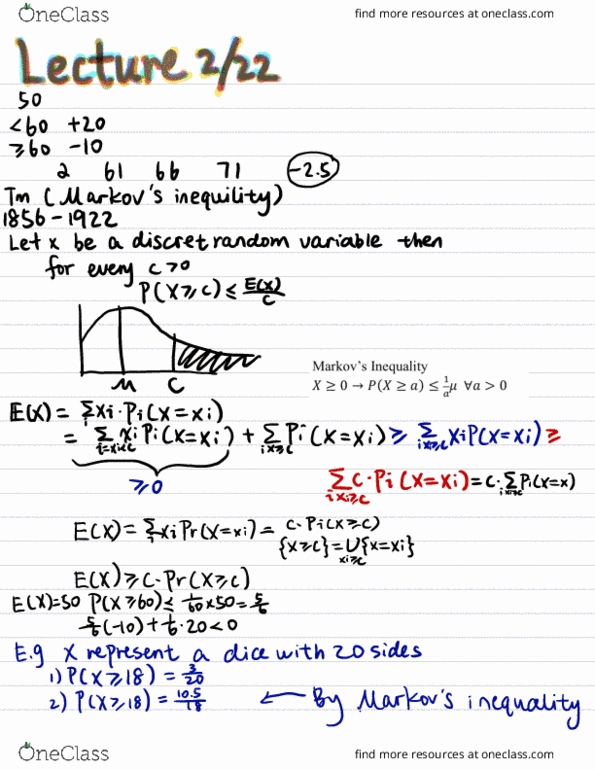 OneClass
find more resources at oneclass.com
Lecture 2/22
50
<60 +20
≥60 -10
2 61 66 71 -2.5
Tm (Markov's inequility)
1856-1922
Let x be a discret random variable then
for every c>0
P(X≥c) ≤ E(x)/c
M C
Markov's Inequality
X ≥ 0 → P(X ≥ a) ≤ 1/a μ ∀a > 0
E(x) = Σ_i xi·Pi(X=xi)
= Σ_{i=xi<c} xi Pi(X=xi) + Σ_{i xi≥c} Pi(X=xi) ≥ Σ_{i xi≥c} xi P(X=xi) ≥
≥0
Σ_{i xi≥c} c·Pi(X=xi) = c·Σ_{i xi≥c} Pi(X=x)
E(X) = Σ_i xi Pr(X=xi) = c·Pi(X≥c)
{X≥c} = U_{xi≥c}{x=xi}
E(X) ≥ c·Pr(X≥c)
E(X)=50 P(X≥60) ≤ 1/60 x 50 = 5/6
5/6(-10) + 1/6·20 < 0
E.g X represent a dice with 20 sides
1) P(X≥18) = 3/20
2) P(X≥18) = 10.5/18 ← By Markov's inequality
OneClass
find more resources at oneclass.com